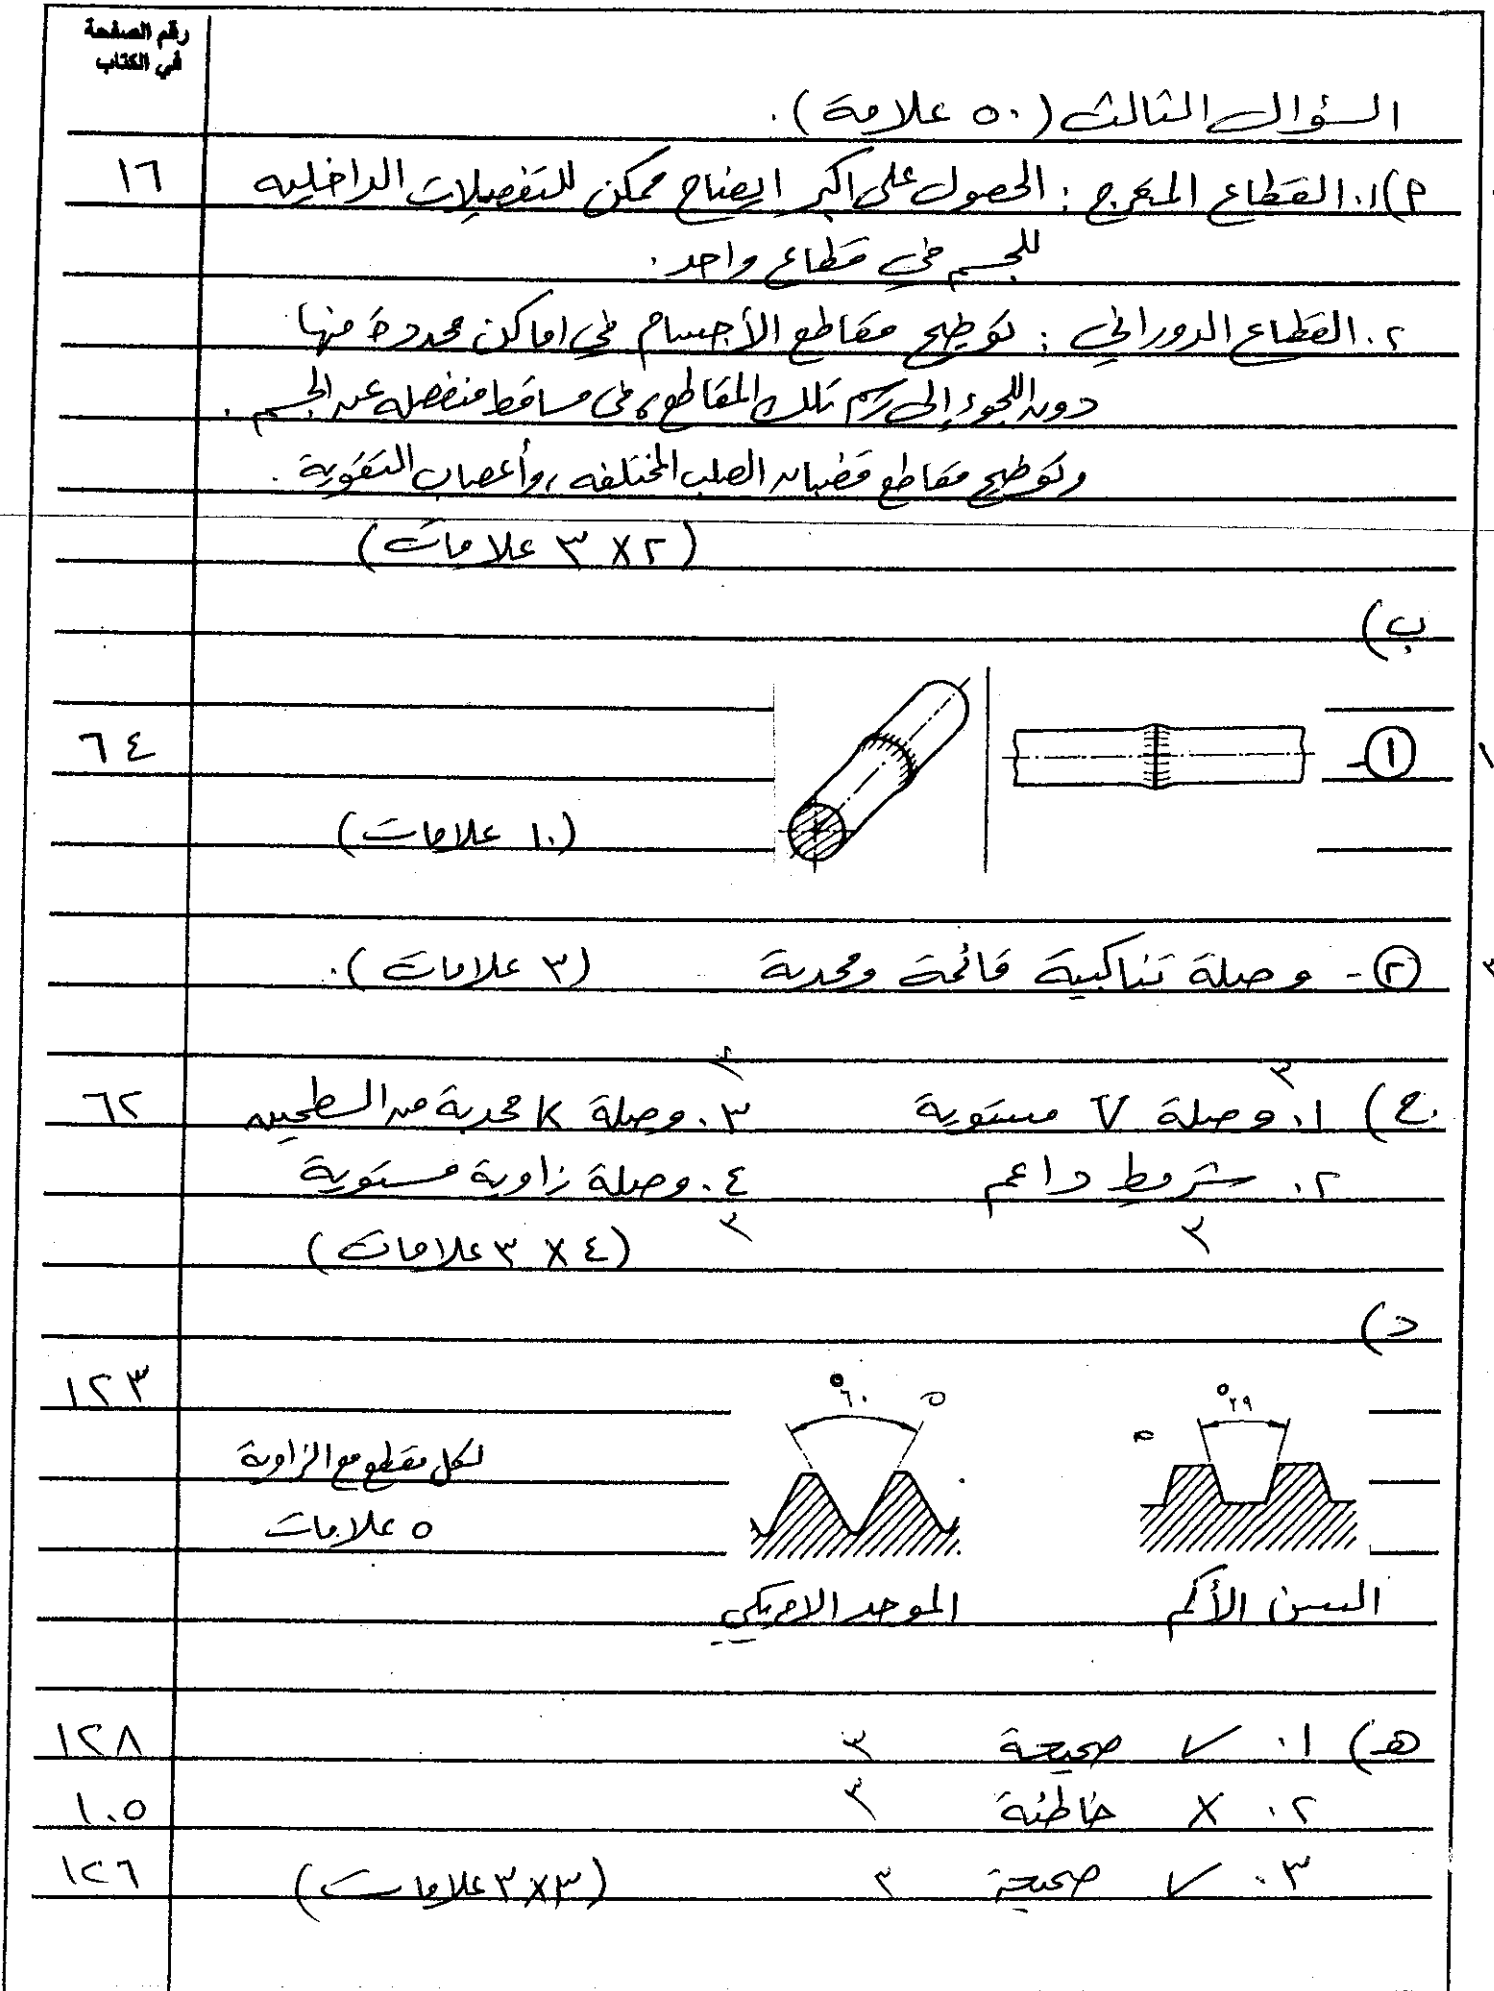 رقم الصفحة
في الكتاب
السؤال الثالث (٥٠ علامة).
أ) ١. القطاع المتعرج : الحصول على اكبر ايضاح ممكن للتفصيلات الداخليه ١٦
للجسم في قطاع واحد.
٢. القطاع الدوراني : توضيح مقاطع الأجسام في اماكن محددة منها
دون اللجوء إلى رسم تلك المقاطع في مساقط منفصله عن الجسم.
وتوضيح مقاطع قضبان الصلب المختلفه، وأعصاب التقوية.
(٢ X ٣ علامات)
ب)
١- ٦٤
(١٠ علامات)
٢- وصلة تناكبية قائمة ومحدبة (٣ علامات).
٣ ٣
ج) ١. وصلة V مستوية ٣. وصلة K محدبة من السطحين ٦٢
٢. شريط داعم ٤. وصلة زاوية مستوية
٣ ٣
(٤ X ٣ علامات)
د)
١٢٣
°٢٩ °٦٠ ٥
٥
لكل مقطع مع الزاوية
٥ علامات
السن الأكم الموحد الامريكي
هـ) ١. ✓ صحيحة ٣ ١٢٨
٢. X خاطئة ٣ ١٠٥
٣. ✓ صحيحة ٣ (٣X٣ علامات) ١٢٦